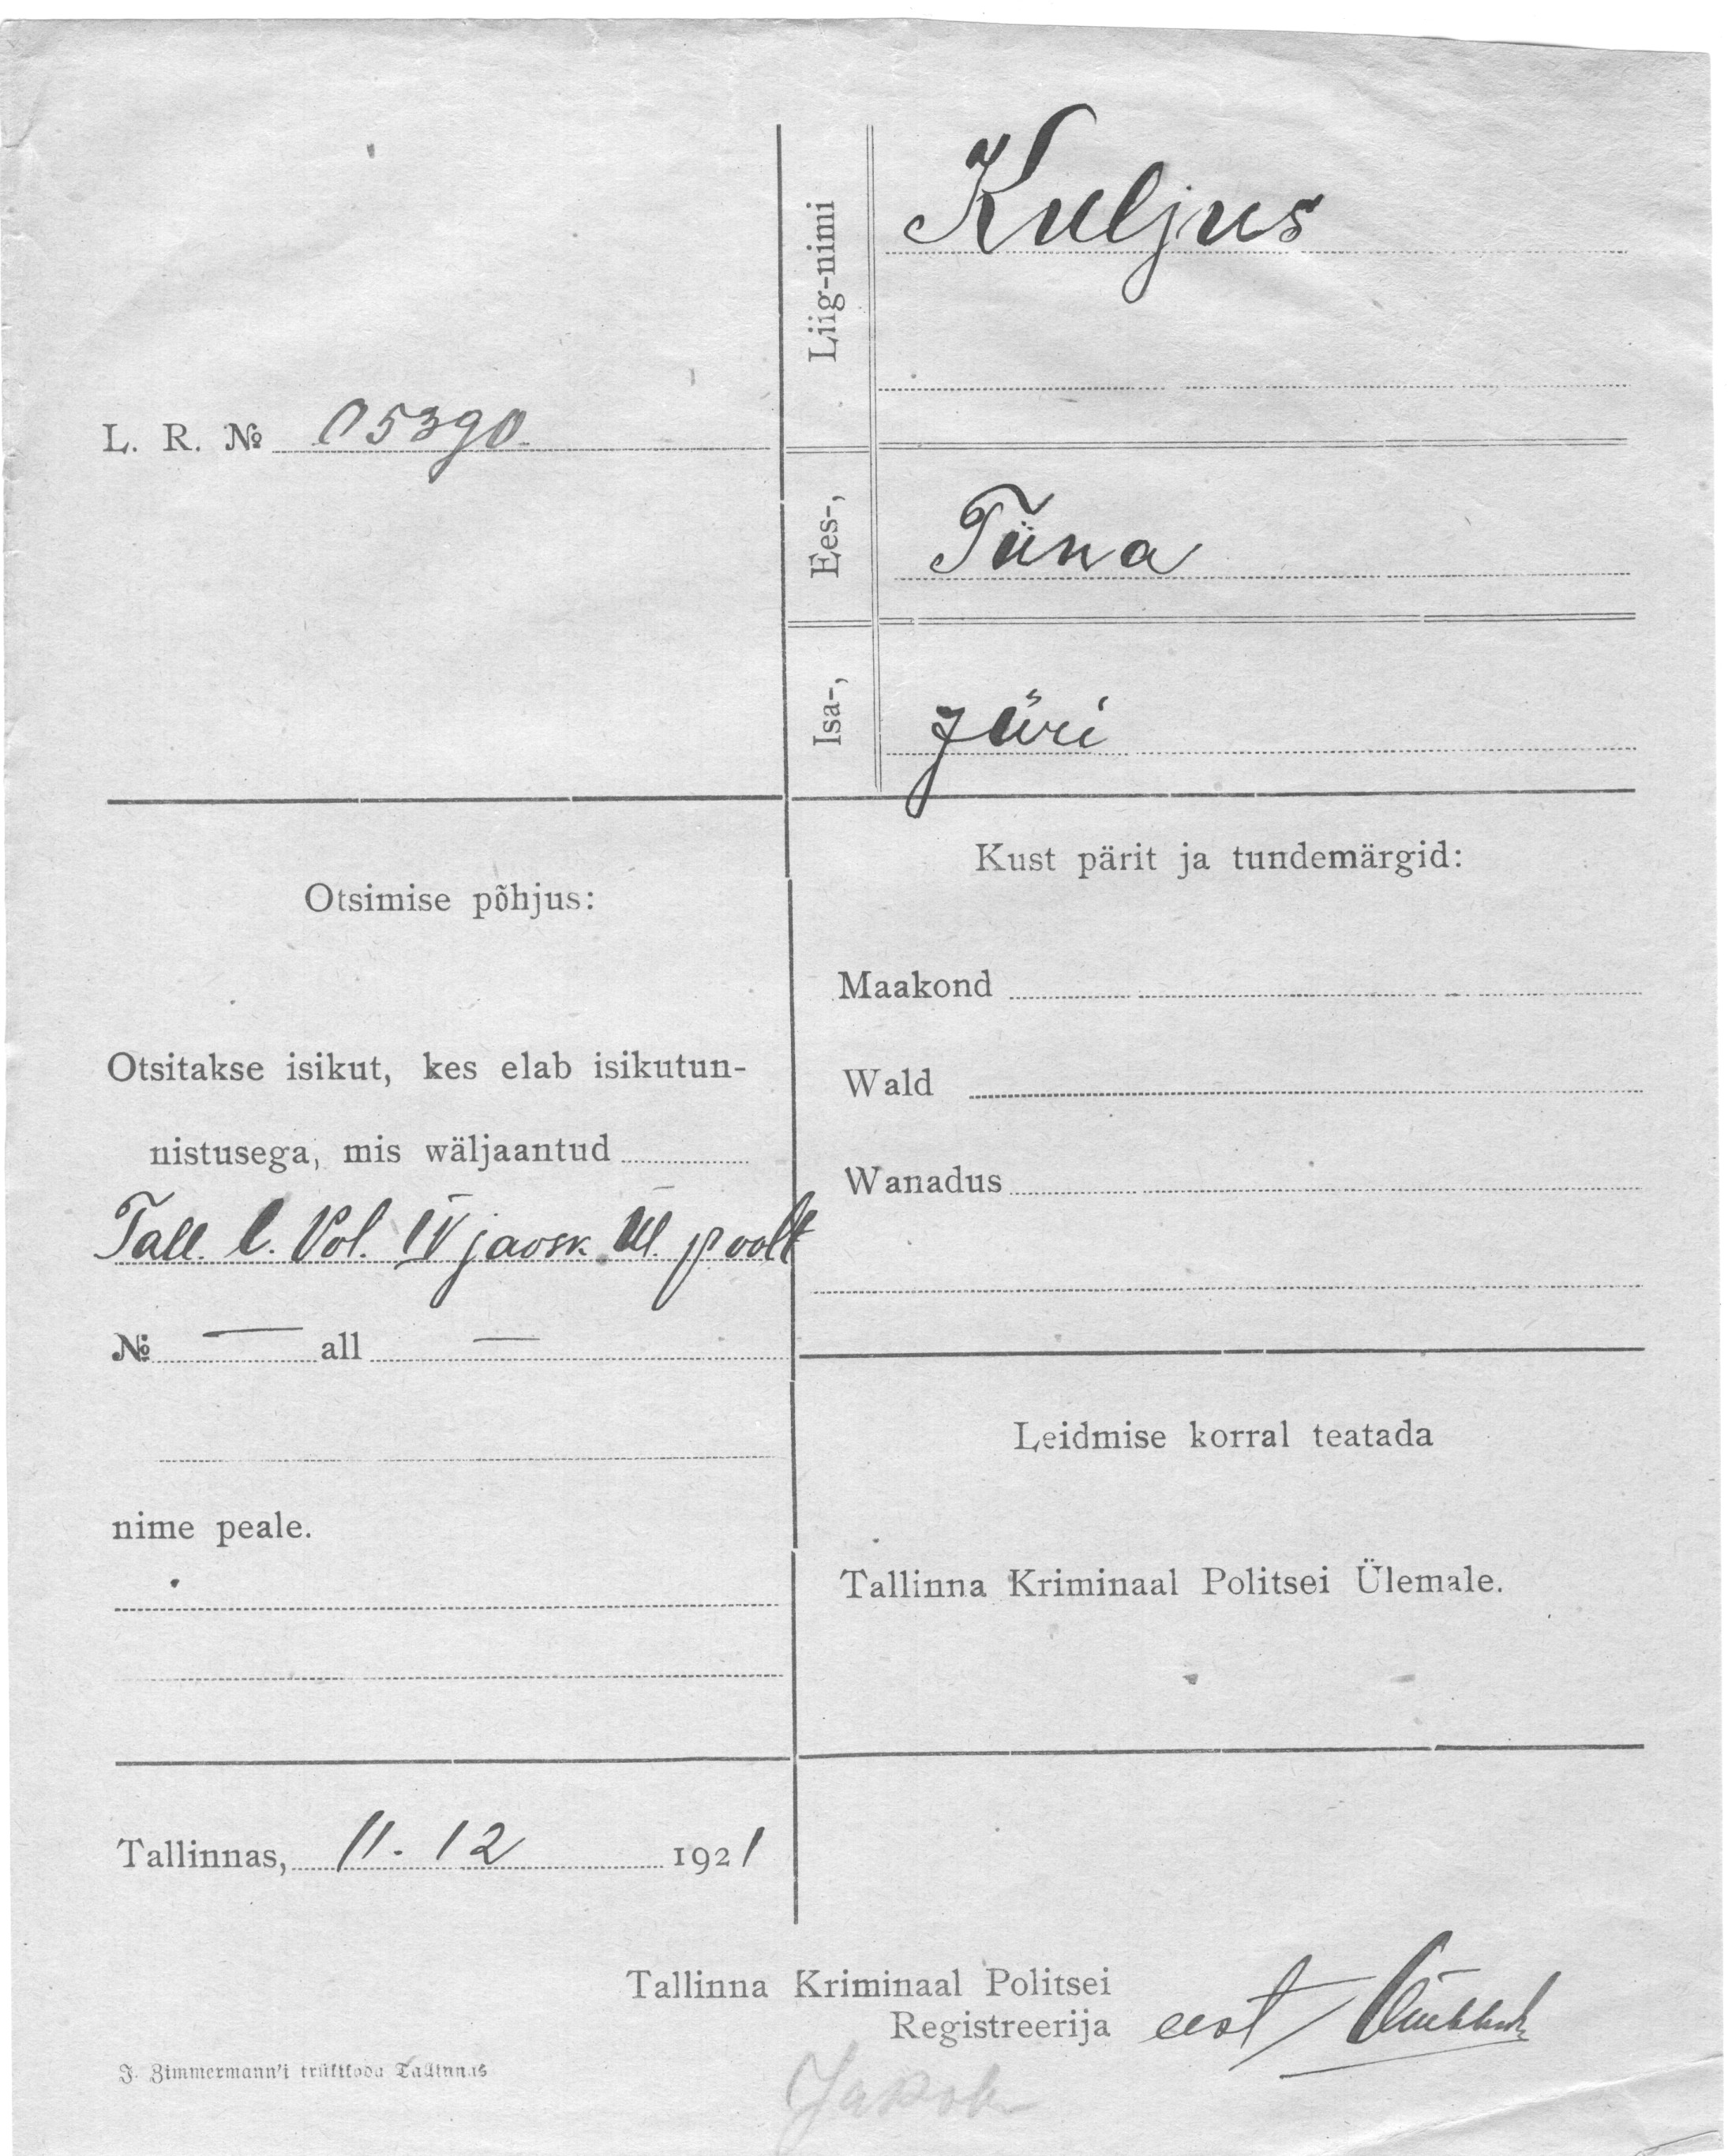 L. R. № 05390
Liig-nimi
Kuljus
Ees-,
Tiina
Isa-,
Jüri
Otsimise põhjus:
Otsitakse isikut, kes elab isikutun-
nistusega, mis wäljaantud
Tall. l. Pol. IV jaosk. Ül. poolt
№ — all —
nime peale.
Kust pärit ja tundemärgid:
Maakond
Wald
Wanadus
Leidmise korral teatada
Tallinna Kriminaal Politsei Ülemale.
Tallinnas, 11. 12 1921
Tallinna Kriminaal Politsei
Registreerija eest
J. Zimmermann'i trükikoda Tallinnas
Jakob